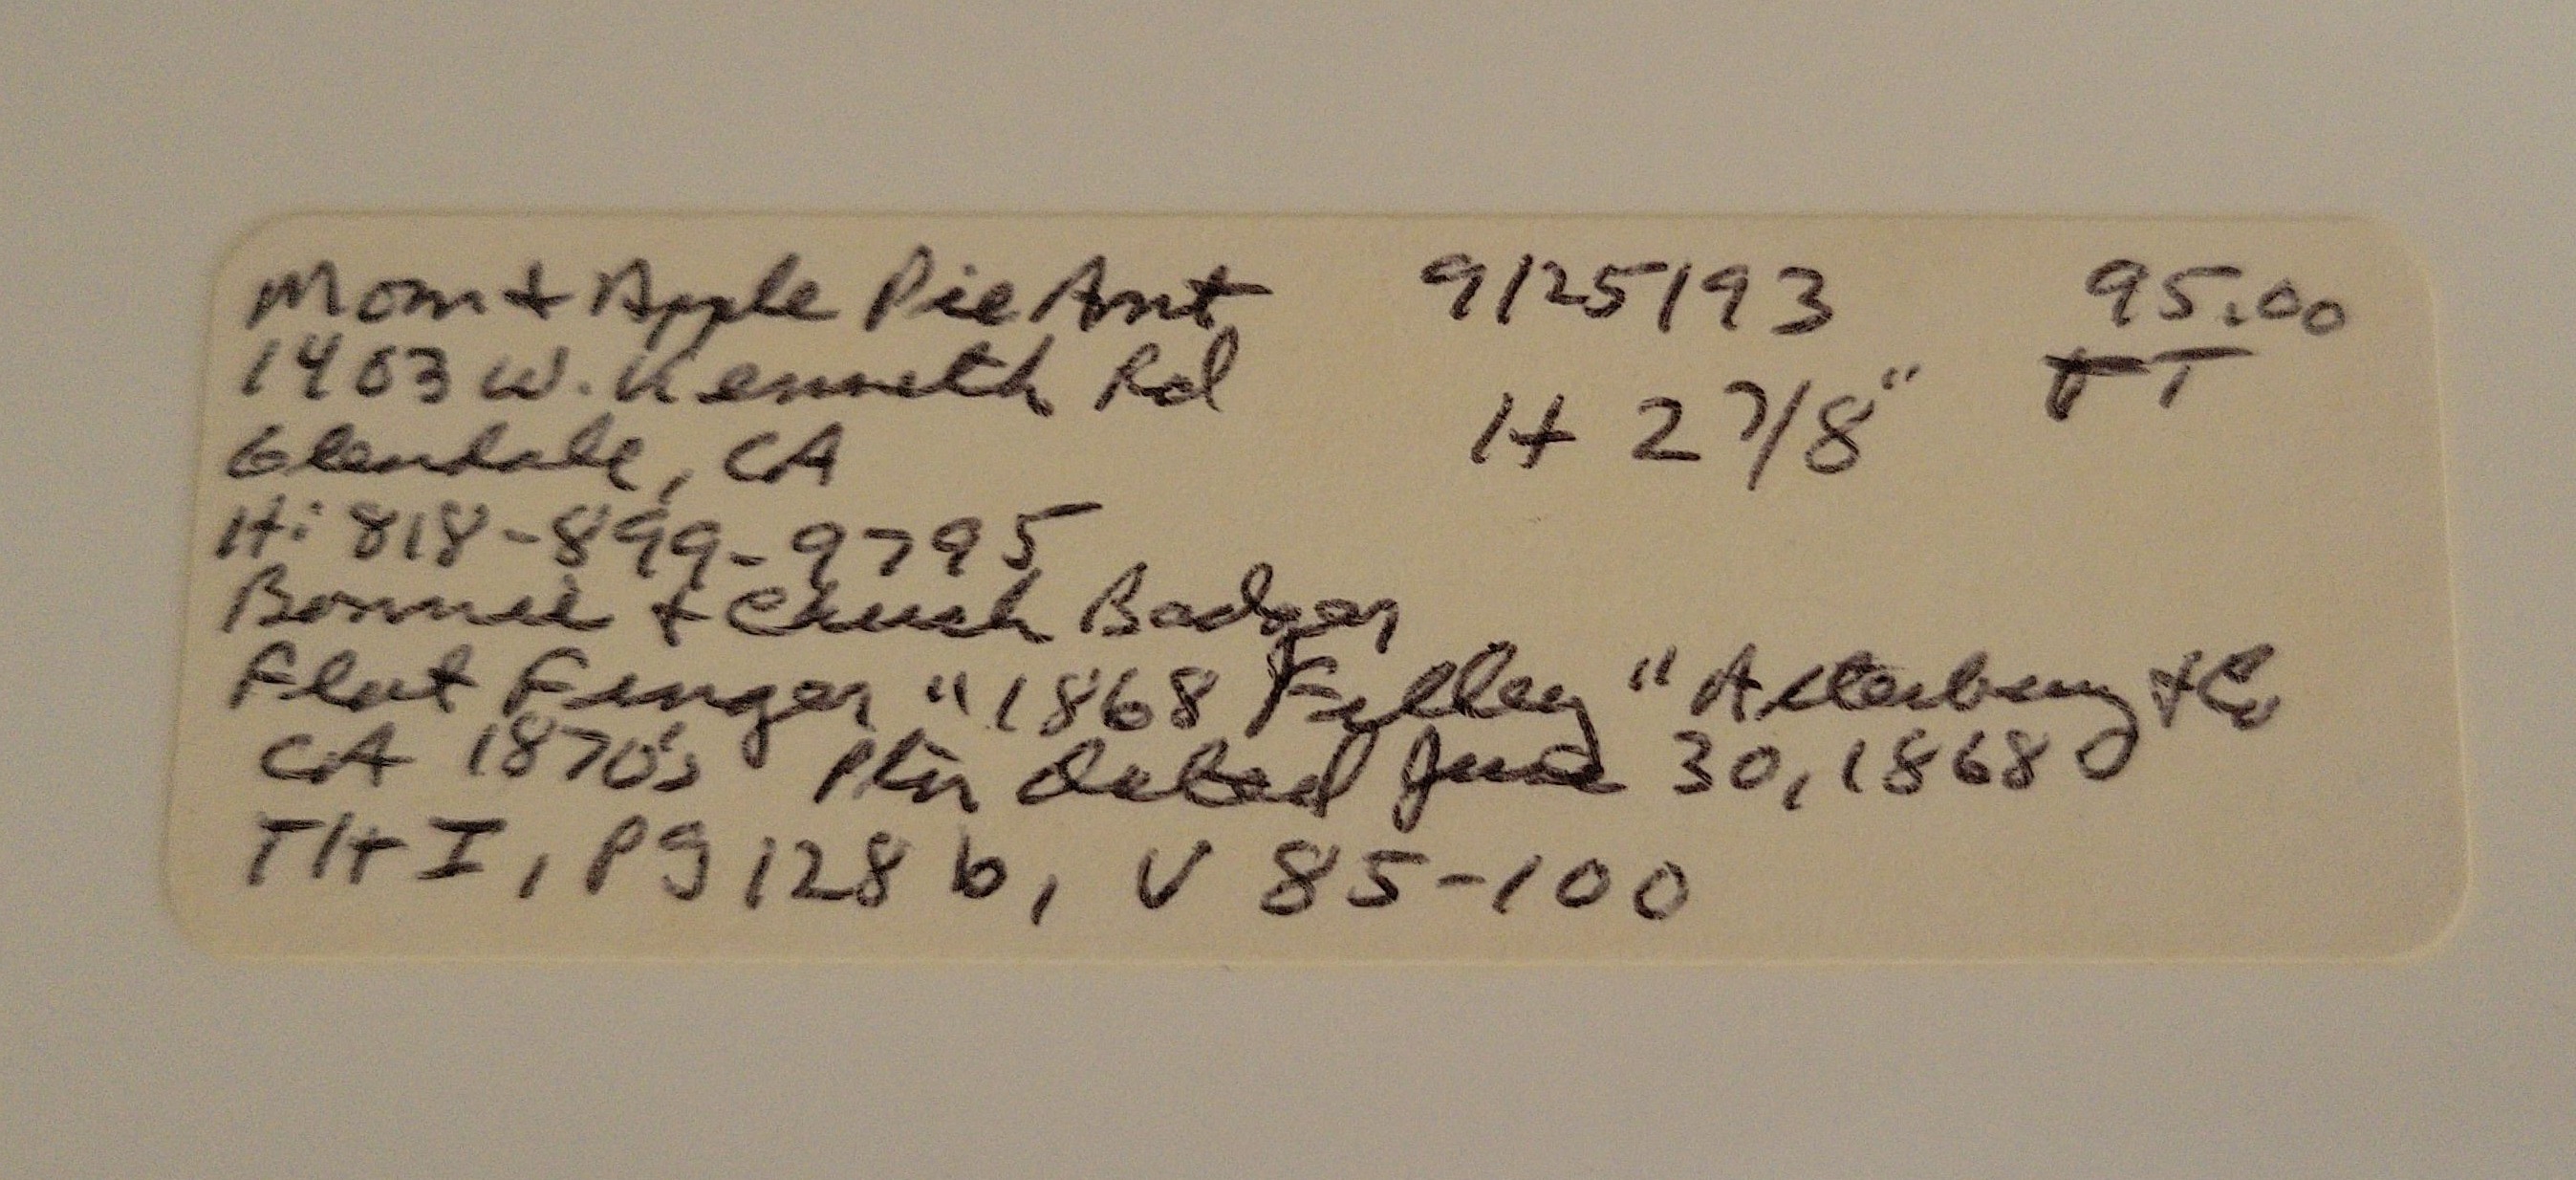 Mom + Apple Pie Ant 9/25/93 95.00
1403 W. Kenneth Rd H 2 7/8"
Glendale, CA
H: 818-899-9795
Bonnie + Chuck Badger
Flat Finger "1868 Filley" Atterbury + Co
CA 1870's Ptn dated June 30, 1868
TH I, Pg 128 b, V 85-100